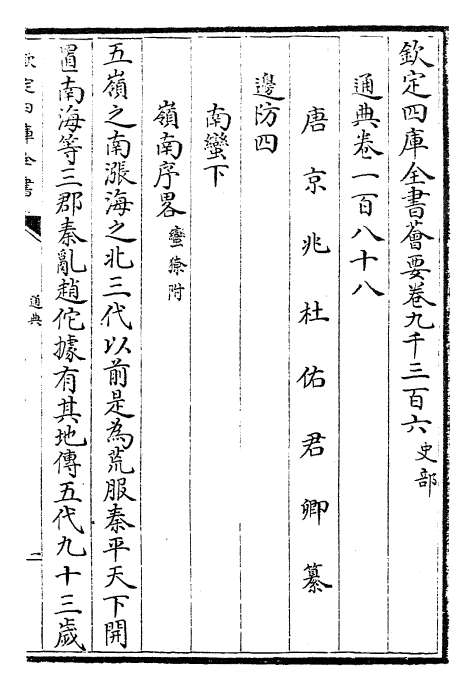 欽定四庫全書薈要卷九千三百六 史部
通典卷一百八十八
唐京兆杜佑君卿纂
邊防四
南蠻下
嶺南序畧 蠻獠附
五嶺之南漲海之北三代以前是為荒服秦平天下開
置南海等三郡秦亂趙佗據有其地傳五代九十三歲
欽定四庫全書
通典